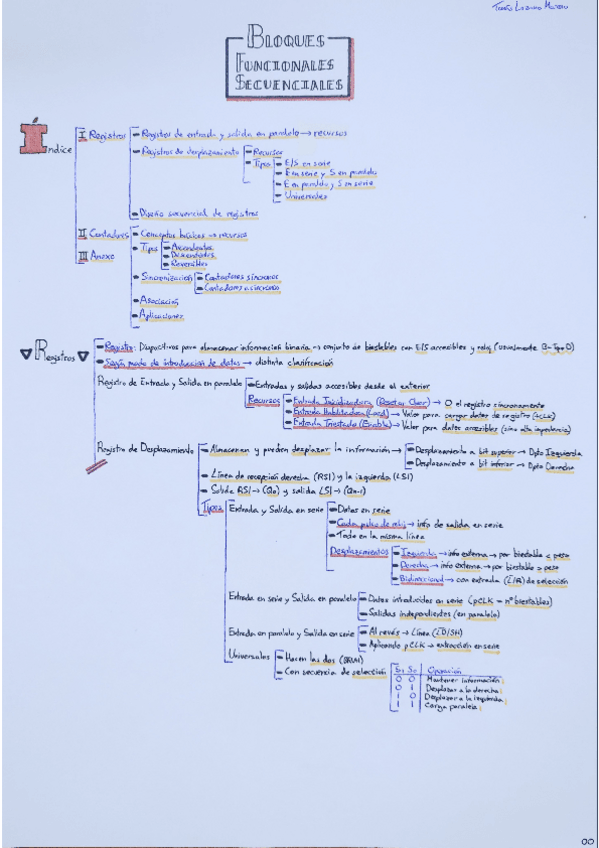 Tomás Lozano
BLOQUES
FUNCIONALES
SECUENCIALES
Índice
I Registros
Registros de entrada y salida en paralelo → recursos
Registros de desplazamiento
Recursos
Tipos
E/S en serie
E en serie y S en paralelo
E en paralelo y S en serie
Universales
Diseño secuencial de registros
II Contadores
Conceptos básicos → recursos
III Anexo
Tipos
Ascendentes
Descendentes
Reversibles
Sincronización
Contadores síncronos
Contadores asíncronos
Asociación
Aplicaciones
▽ Registros ▽
Registro: Dispositivos para almacenar información binaria → conjunto de biestables con E/S accesibles y reloj (usualmente B-Tipo D)
Según modo de introducción de datos → distinta clasificación
Registro de Entrada y Salida en paralelo
Entradas y salidas accesibles desde el exterior
Recursos
Entrada Inicializadora (Reset o Clear) → 0 el registro síncronamente
Entrada Habilitadora (Load) → Valor para cargar datos de registro (+CLK)
Entrada Triestado (Enable) → Valor para datos accesibles (sino alta impedancia)
Registro de Desplazamiento
Almacenan y pueden desplazar la información →
Desplazamiento a bit superior → Dpto Izquierda
Desplazamiento a bit inferior → Dpto Derecha
Línea de recepción derecha (RSI) y la izquierda (LSI)
Salida RSI → (Q0) y salida LSI → (Qn-1)
Tipos
Entrada y Salida en serie
Datos en serie
Cada pulso de reloj → info de salida en serie
Todo en la misma línea
Desplazamientos
Izquierda → info externa → por biestable < peso
Derecha → info externa → por biestable > peso
Bidireccional → con entrada (L/R) de selección
Entrada en serie y Salida en paralelo
Datos introducidos en serie (pCLK = nº biestables)
Salidas independientes (en paralelo)
Entrada en paralelo y Salida en serie
Al revés → Línea (LD/SH)
Aplicando pCLK → extracción en serie
Universales
Hacen las dos
Con secuencia de selección
S1 S0 Operación
0 0 Mantener información
0 1 Desplazar a la derecha
1 0 Desplazar a la izquierda
1 1 Carga paralela
00